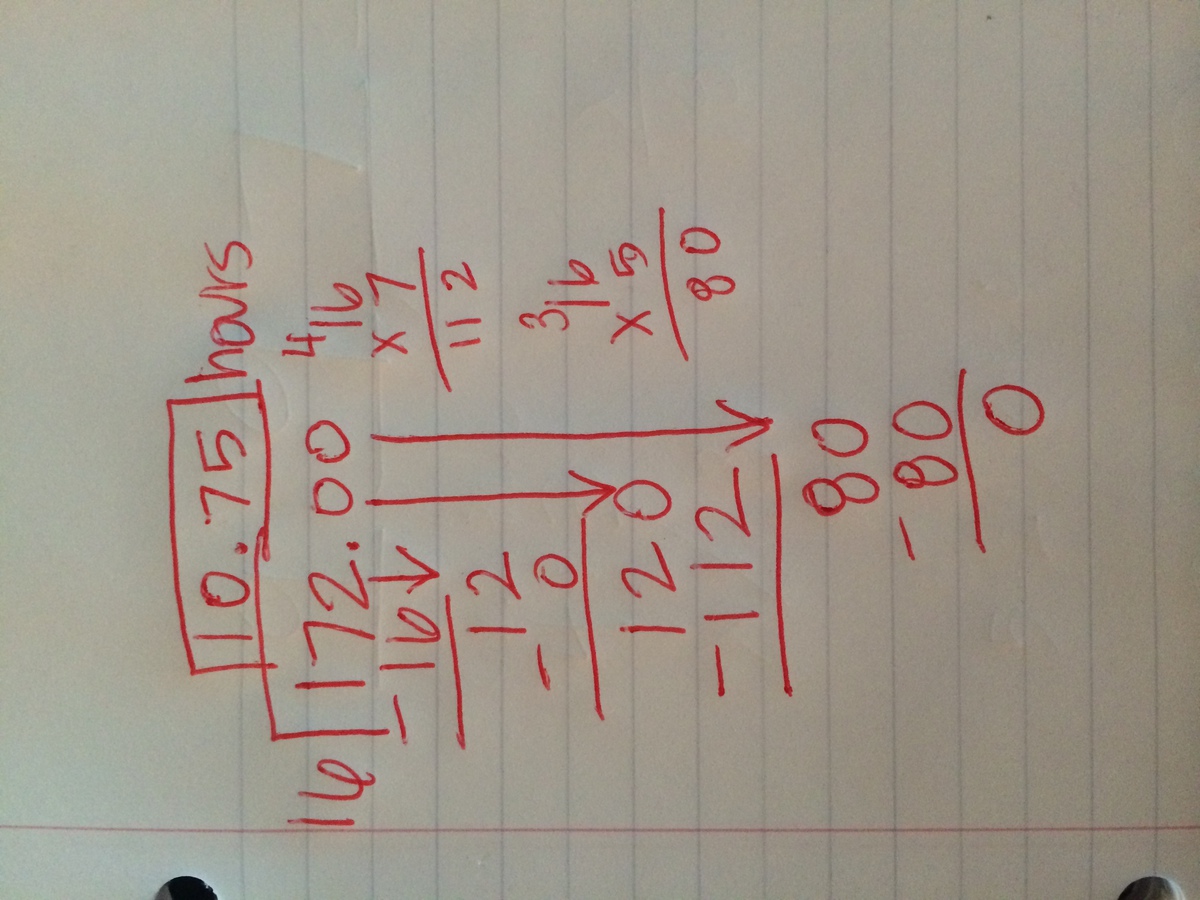 10.75 hours
16 172.00
- 16
12
- 0
120
- 112
80
- 80
0
4
16
x 7
112
3
16
x 5
80